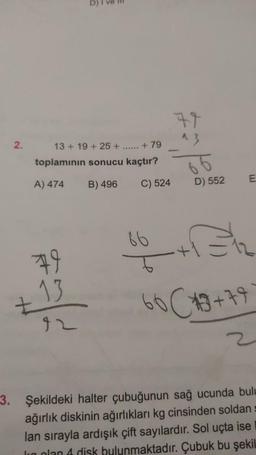 D) I ve III
79
- 13
66
2. 13 + 19 + 25 + ...... + 79
toplamının sonucu kaçtır?
A) 474 B) 496 C) 524 D) 552 E
66
6
+1 = 12
79
+ 13
92
60 (13+79
2
3. Şekildeki halter çubuğunun sağ ucunda
ağırlık diskinin ağırlıkları kg cinsinden soldan
lan sırayla ardışık çift sayılardır. Sol uçta ise
olan 4 disk bulunmaktadır. Çubuk bu